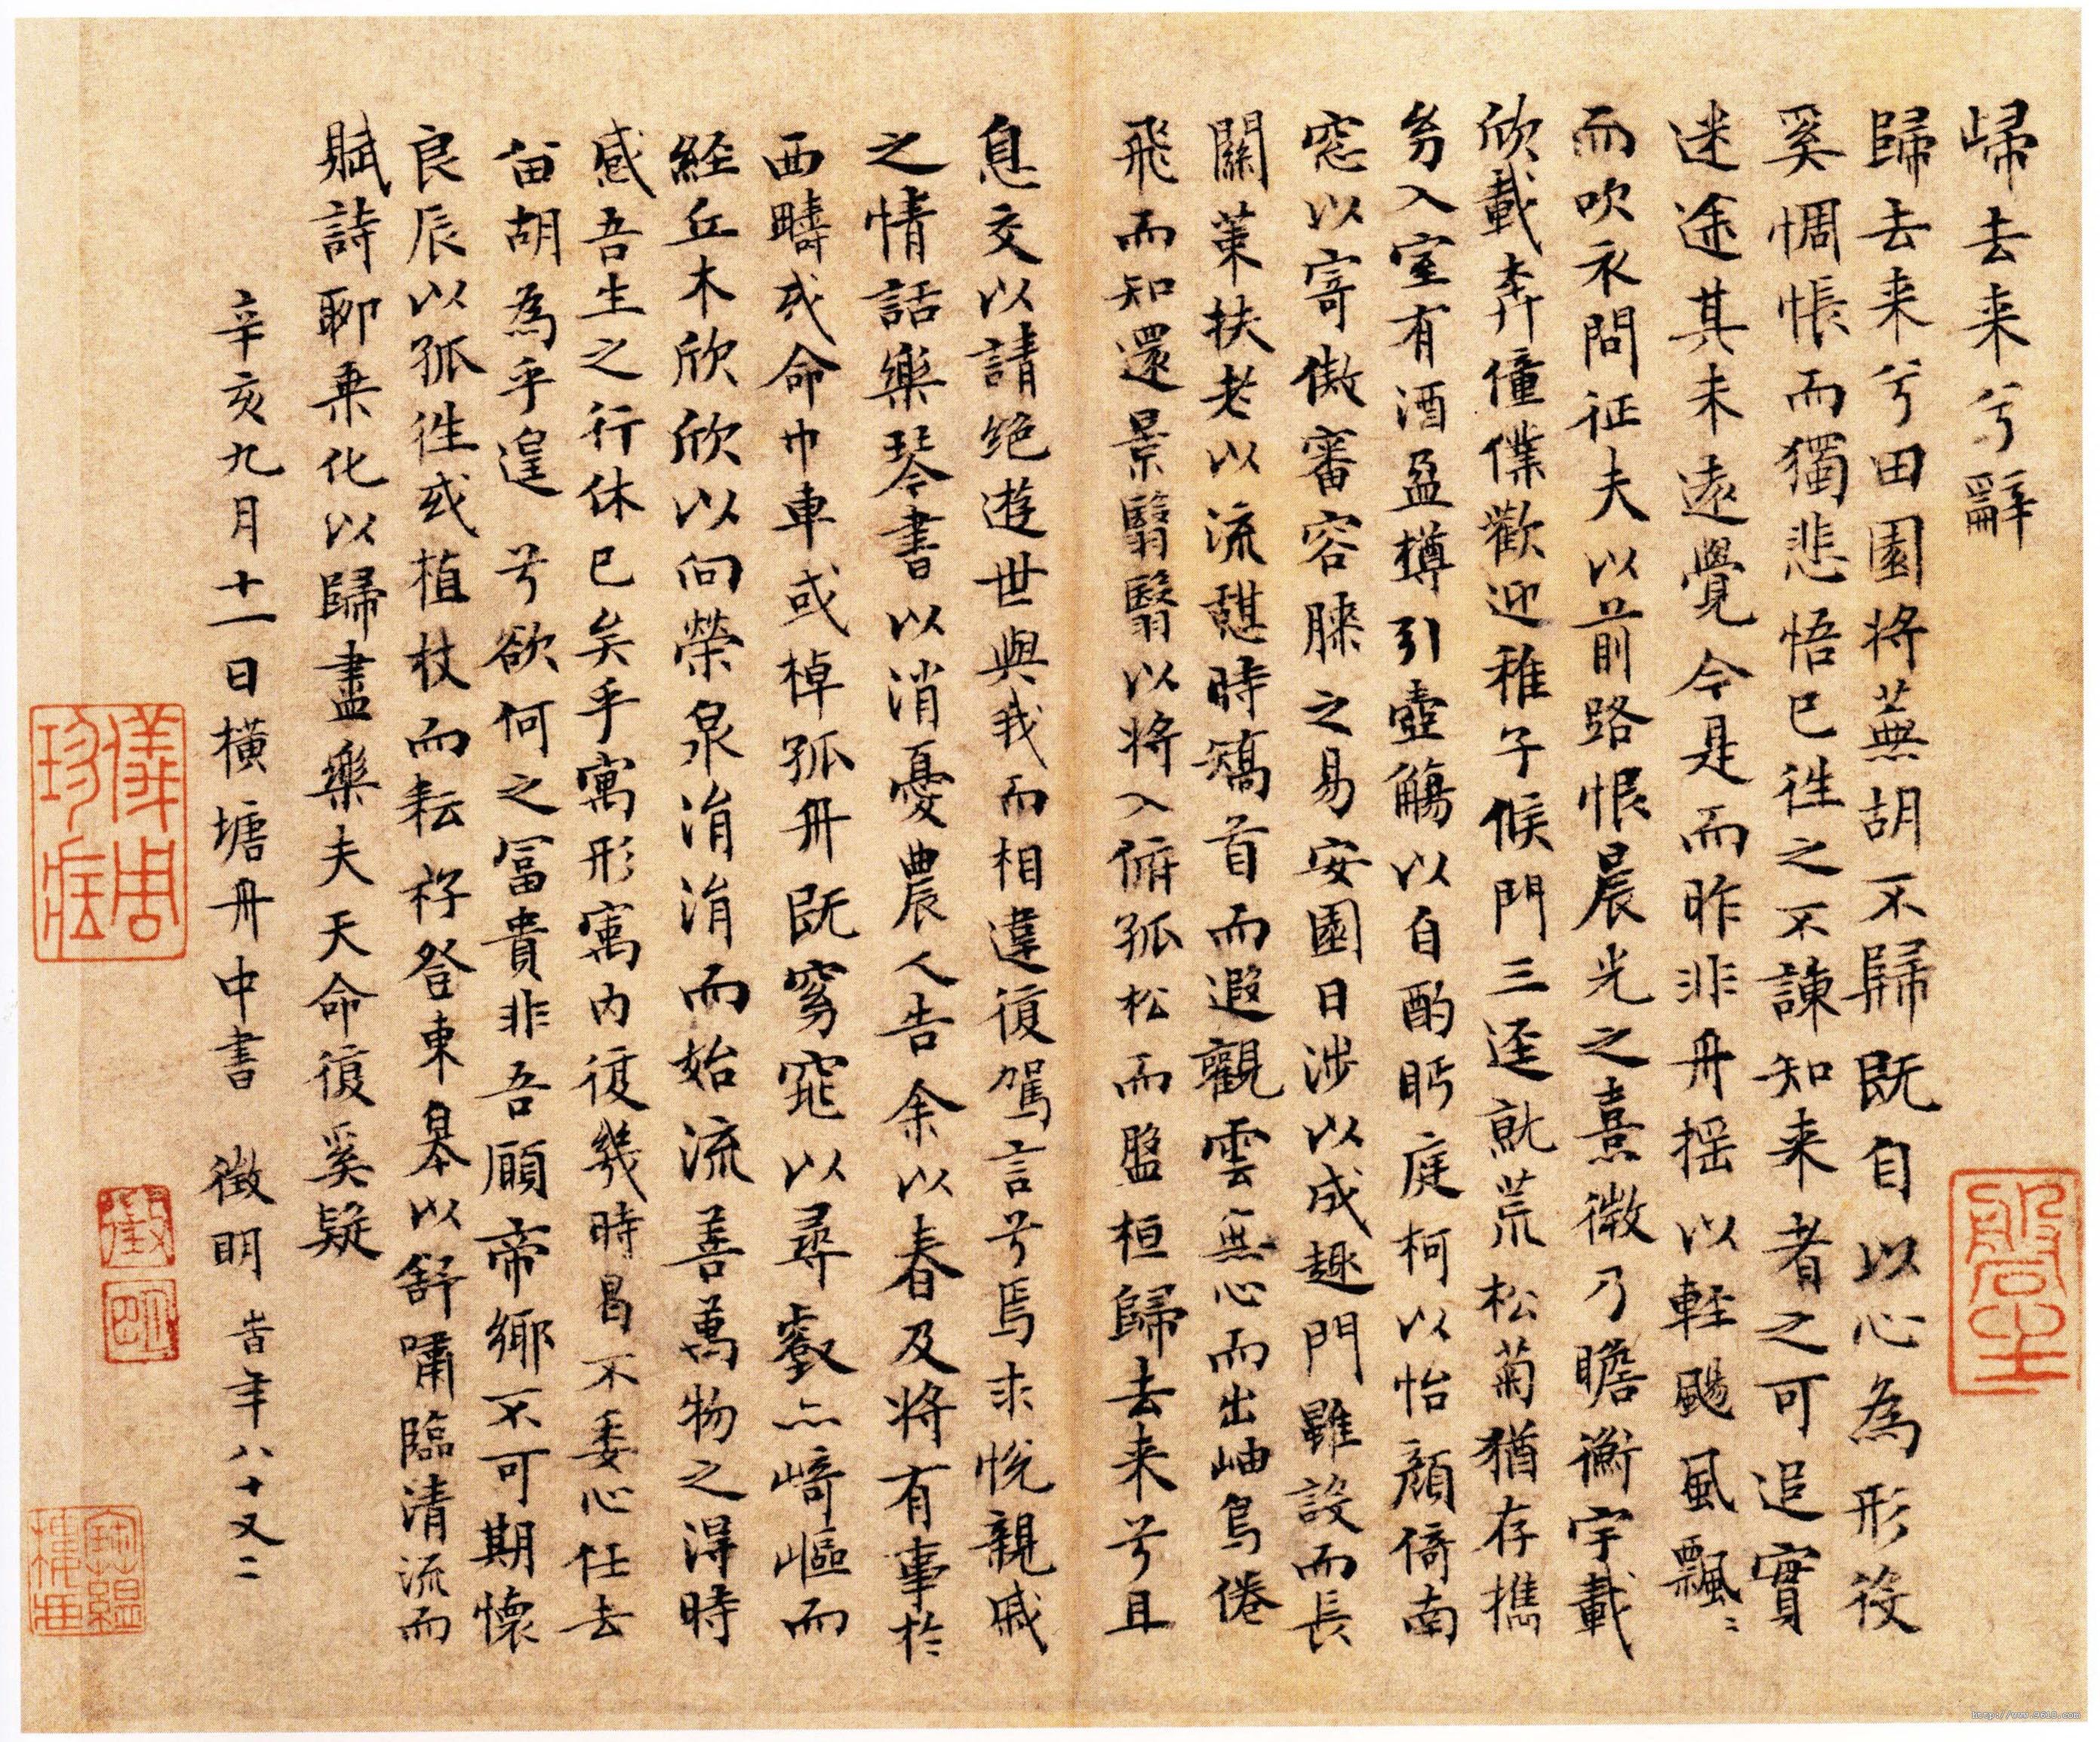 歸去来兮辭
歸去来兮田園将蕪胡不歸既自以心為形役
奚惆悵而獨悲悟已往之不諫知来者之可追實
迷途其未遠覺今是而昨非舟揺以輕颺風飄〻
而吹衣問征夫以前路恨晨光之熹微乃瞻衡宇載
欣載奔僮僕歡迎稚子候門三逕就荒松菊猶存攜
幼入室有酒盈樽引壺觴以自酌眄庭柯以怡顔倚南
窓以寄傲審容膝之易安園日涉以成趣門雖設而長
關策扶老以流憩時矯首而遐觀雲無心而出岫鳥倦
飛而知還景翳翳以将入俯孤松而盤桓歸去来兮且
息交以請絶遊世與我而相違復駕言兮焉求悦親戚
之情話樂琴書以消憂農人告余以春及将有事於
西疇或命巾車或棹孤舟既窈窕以尋壑亦崎嶇而
経丘木欣欣以向榮泉涓涓而始流善萬物之得時
感吾生之行休已矣乎寓形寓内復幾時曷不委心任去
留胡為乎遑兮欲何之冨貴非吾願帝鄉不可期懷
良辰以孤往或植杖而耘耔登東皋以舒嘯臨清流而
賦詩聊乗化以歸盡樂夫天命復奚疑
辛亥九月十一日橫塘舟中書 徵明 旹年八十又二
徵
明
儀周珍藏
http://www.9610.com